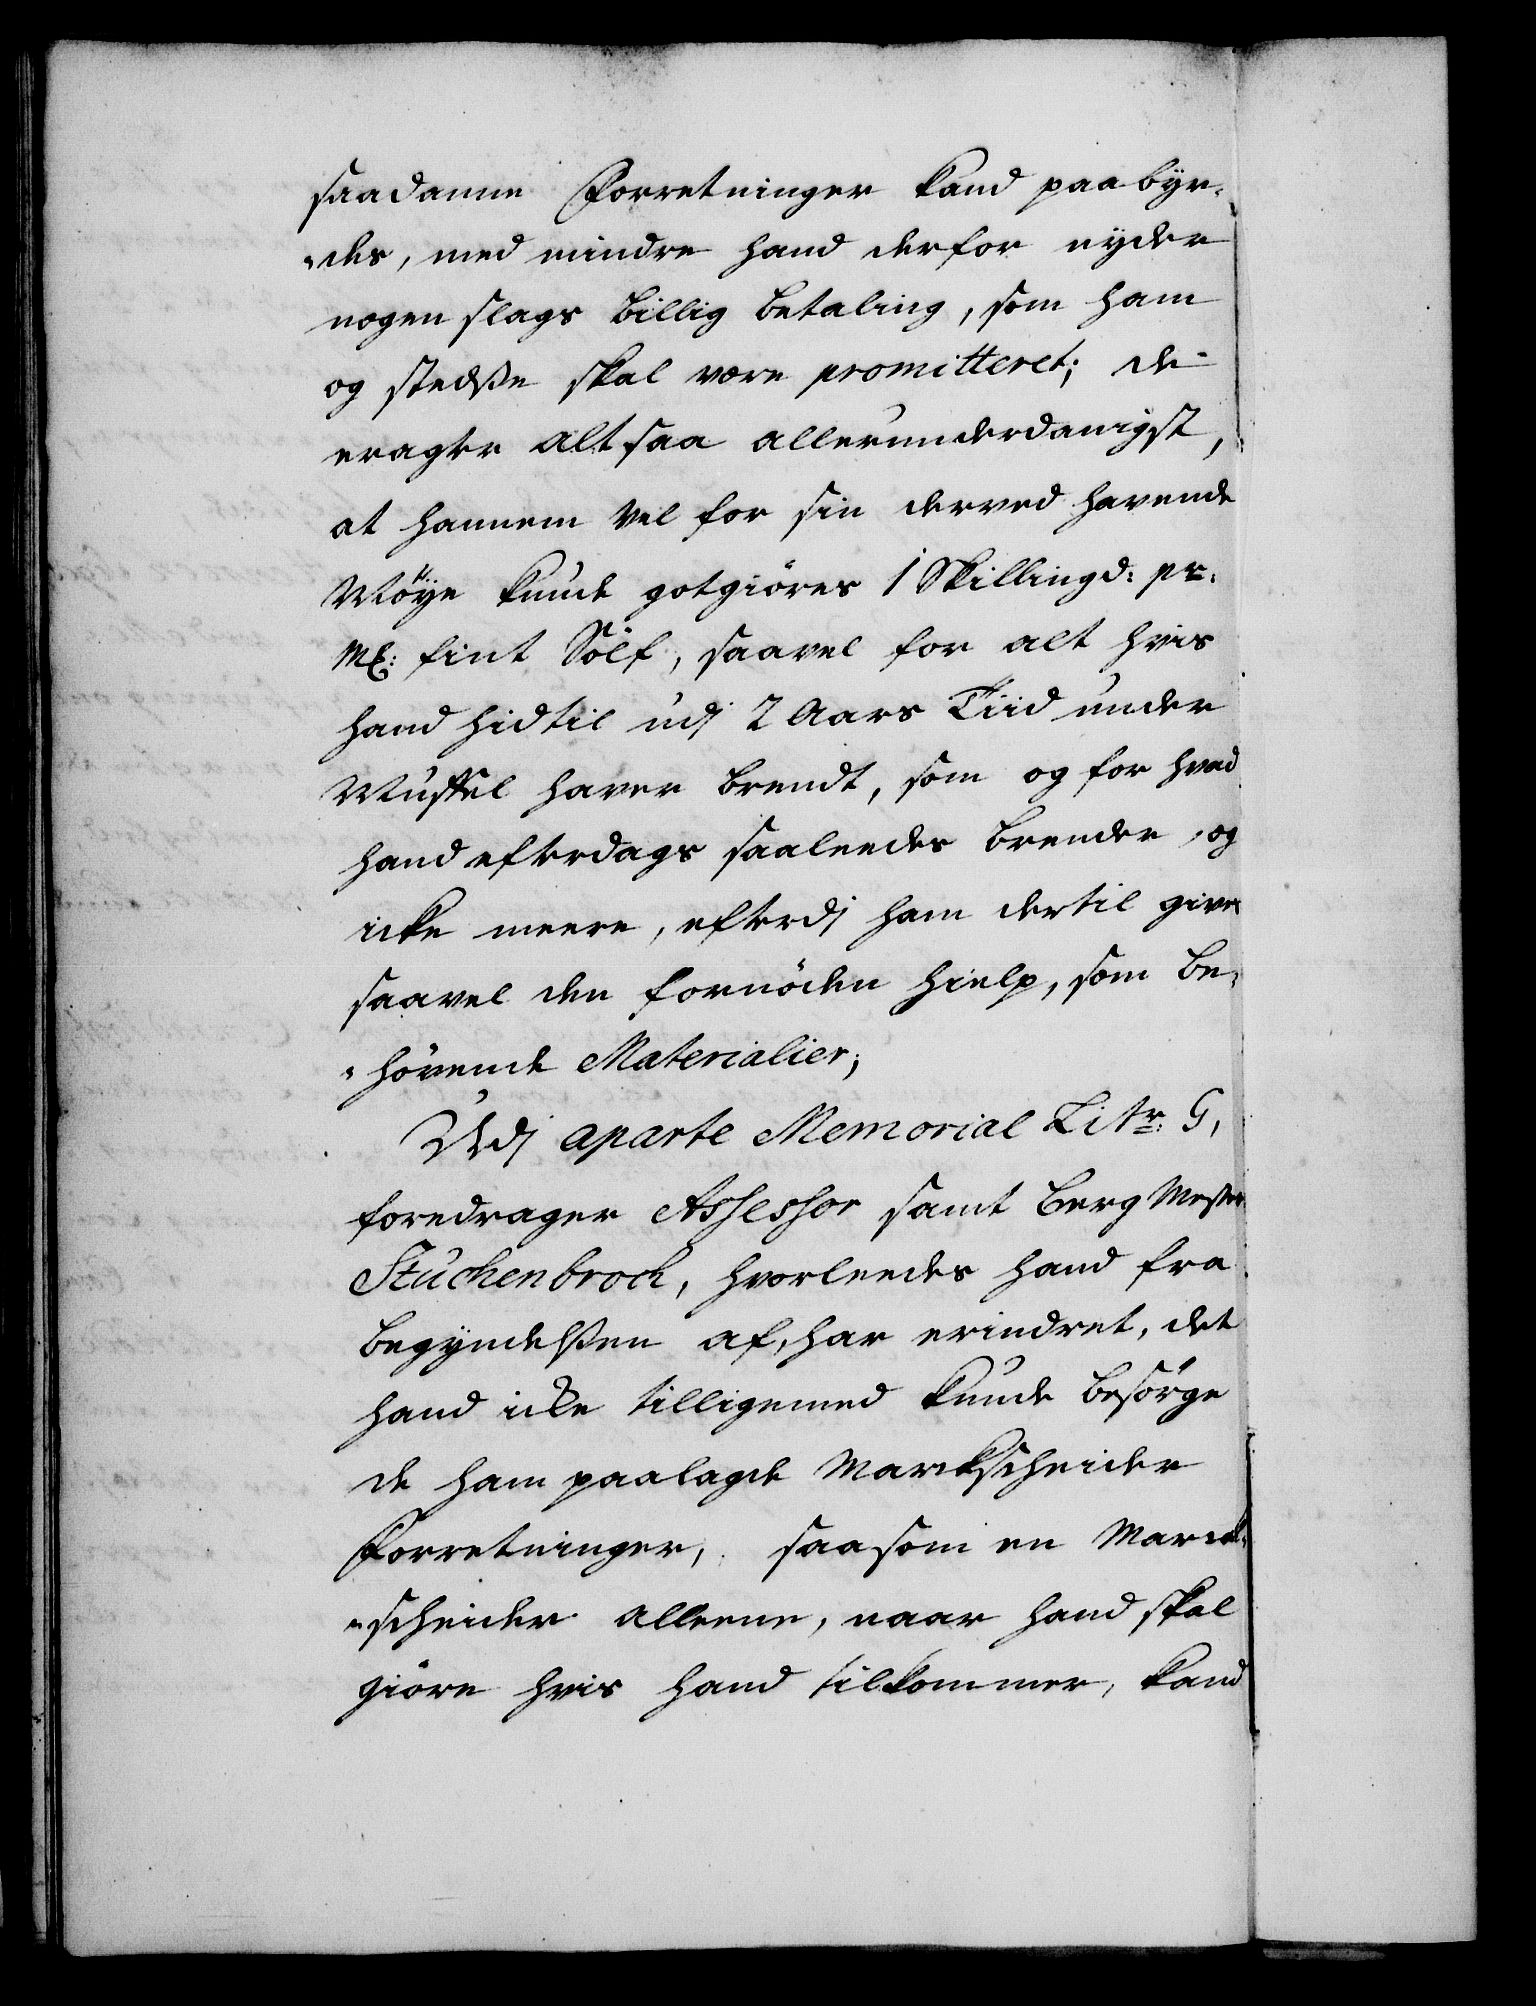 saadanne Forretninger kand paabyr-
-des, med mindre hand derfor nyder
nogen slags billig betaling, som ham
og stedsse skal være promitteret; de
eragter altsaa allerunderdanigst,
at hannem vel for sin derved havende
Möye kunde gotgiöres 1 Skilling d: pr:
Mk: fint Sölf, saavel for alt hvis
hand hidtil udj 2 Aars Tiid under
Muffel haver brendt, som og for hvad
hand efterdags saaleedes brender, og
icke meere, efterdj ham dertil gives
saavel den fornöden hielp, som be-
-hövende Materialier;
Udj aparte Memorial Litr: G,
foredrager Assessor samt Berg Mester
Stuckenbrock, hvorleedes hand fra
begyndelssen af, har erindret, det
hand icke tilligemed kunde besörge
de ham paalagde Markscheider
Forretninger, saasom en Marck-
-scheider alleene, naar hand skal
giöre hvis hand tilkommer, kand